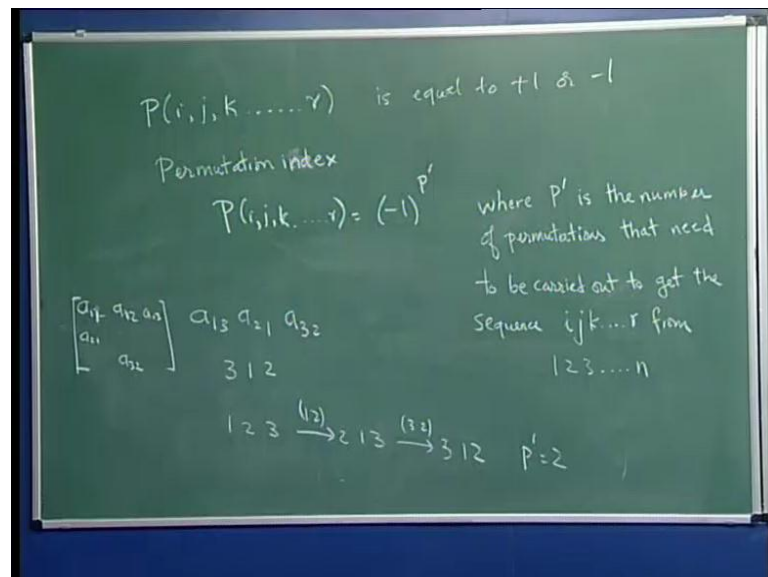 P(i, j, k ...... r) is equal to +1 or -1
Permutation index
P(i,j,k.....r) = (-1)^p'
where p' is the number
of permutations that need
to be carried out to get the
sequence ijk....r from
123....n
[a11 a12 a13] a13 a21 a32
a21
a32
3 1 2
1 2 3 (12)→ 2 1 3 (32)→ 3 1 2 p'=2